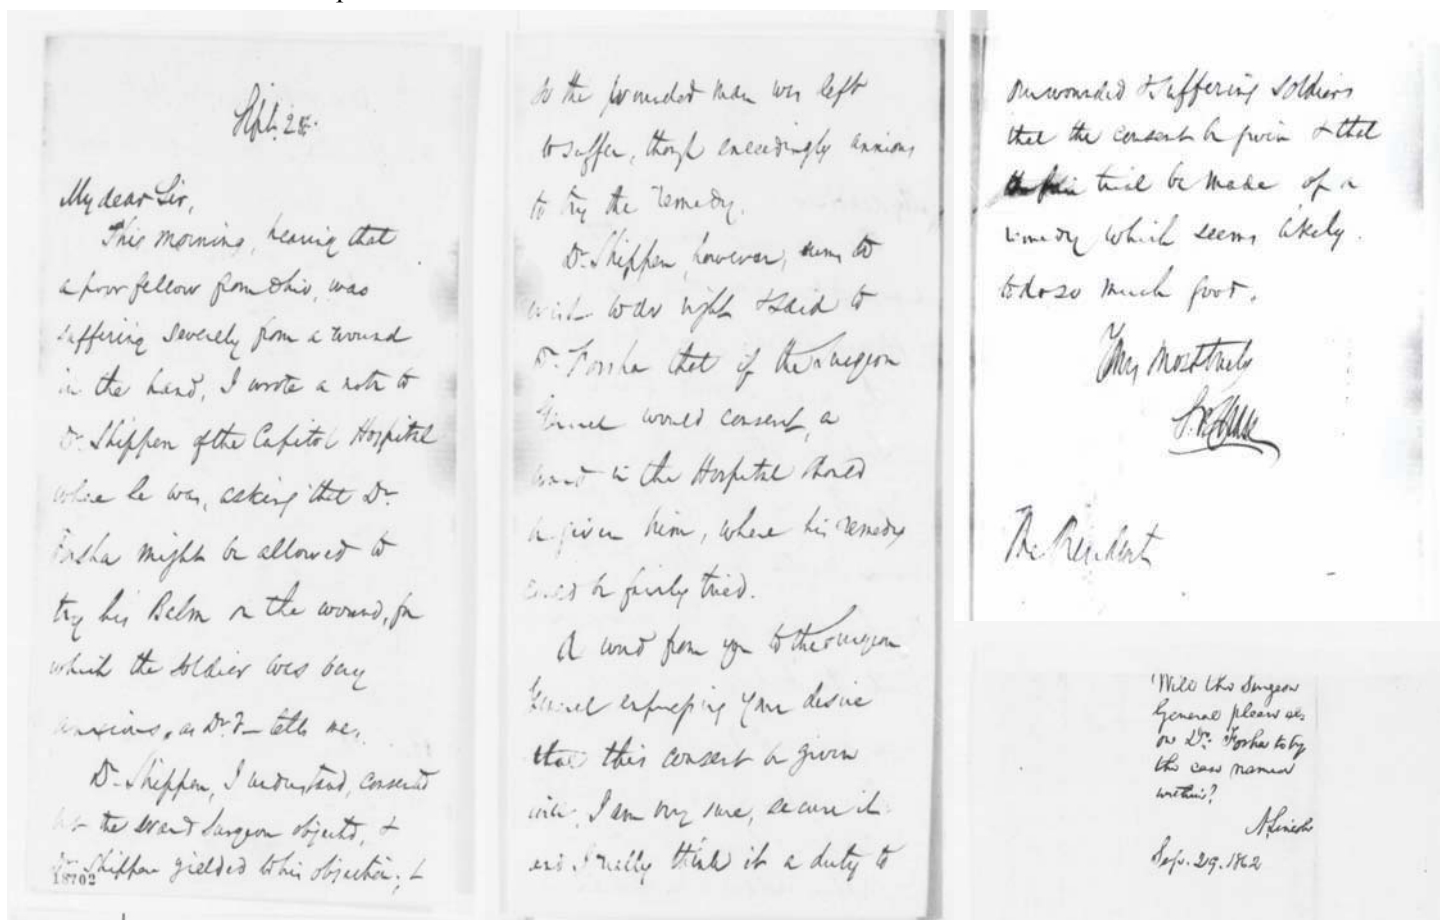 Sept. 28.
My dear Sir,
This morning, hearing that
a poor fellow from Ohio, was
suffering severely from a wound
in the hand, I wrote a note to
Dr. Shippen of the Capitol Hospital
where he was, asking that Dr.
Forsha might be allowed to
try his Balm on the wound, for
which the soldier was very
anxious, as Dr. F— tells me.
Dr. Shippen, I understand, consented
but the Ward Surgeon objected, &
Dr. Shippen yielded to his objection; &
18702
so the wounded man was left
to suffer, though exceedingly anxious
to try the remedy.
Dr. Shippen, however, seems to
wish to do right & said to
Dr. Forsha that if the Surgeon
General would consent, a
ward in the Hospital should
be given him, where his remedy
could be fairly tried.
A word from you to the Surgeon
General expressing your desire
that this consent be given
will, I am very sure, secure it.
and I really think it a duty to
our wounded & suffering soldiers
that the consent be given & that
trial be made of a
remedy which seems likely
to do so much good.
Yours most truly
S.P. Chase
The President
Will the Surgeon
General please
or Dr. Forsha to try
the case named
within?
A. Lincoln
Sep. 29. 1862